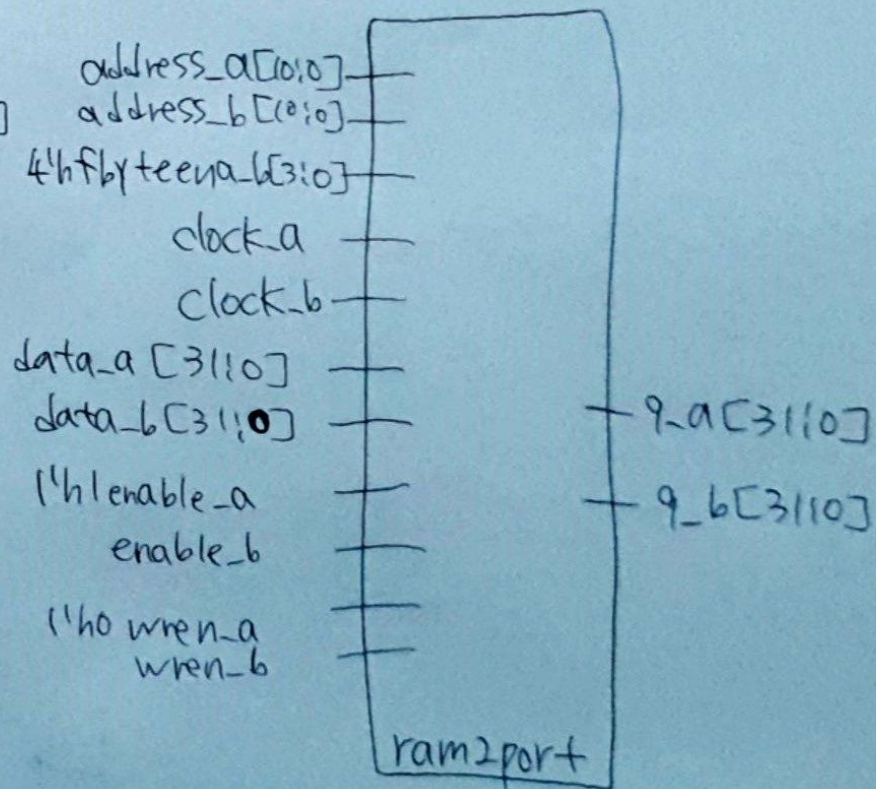 address_a[10:0]
]
address_b[10:0]
4'hf byteena_b[3:0]
clock_a
clock_b
data_a [31:0]
data_b[31:0]
q_a[31:0]
1'h1 enable_a
q_b[31:0]
enable_b
1'h0 wren_a
wren_b
ram2port